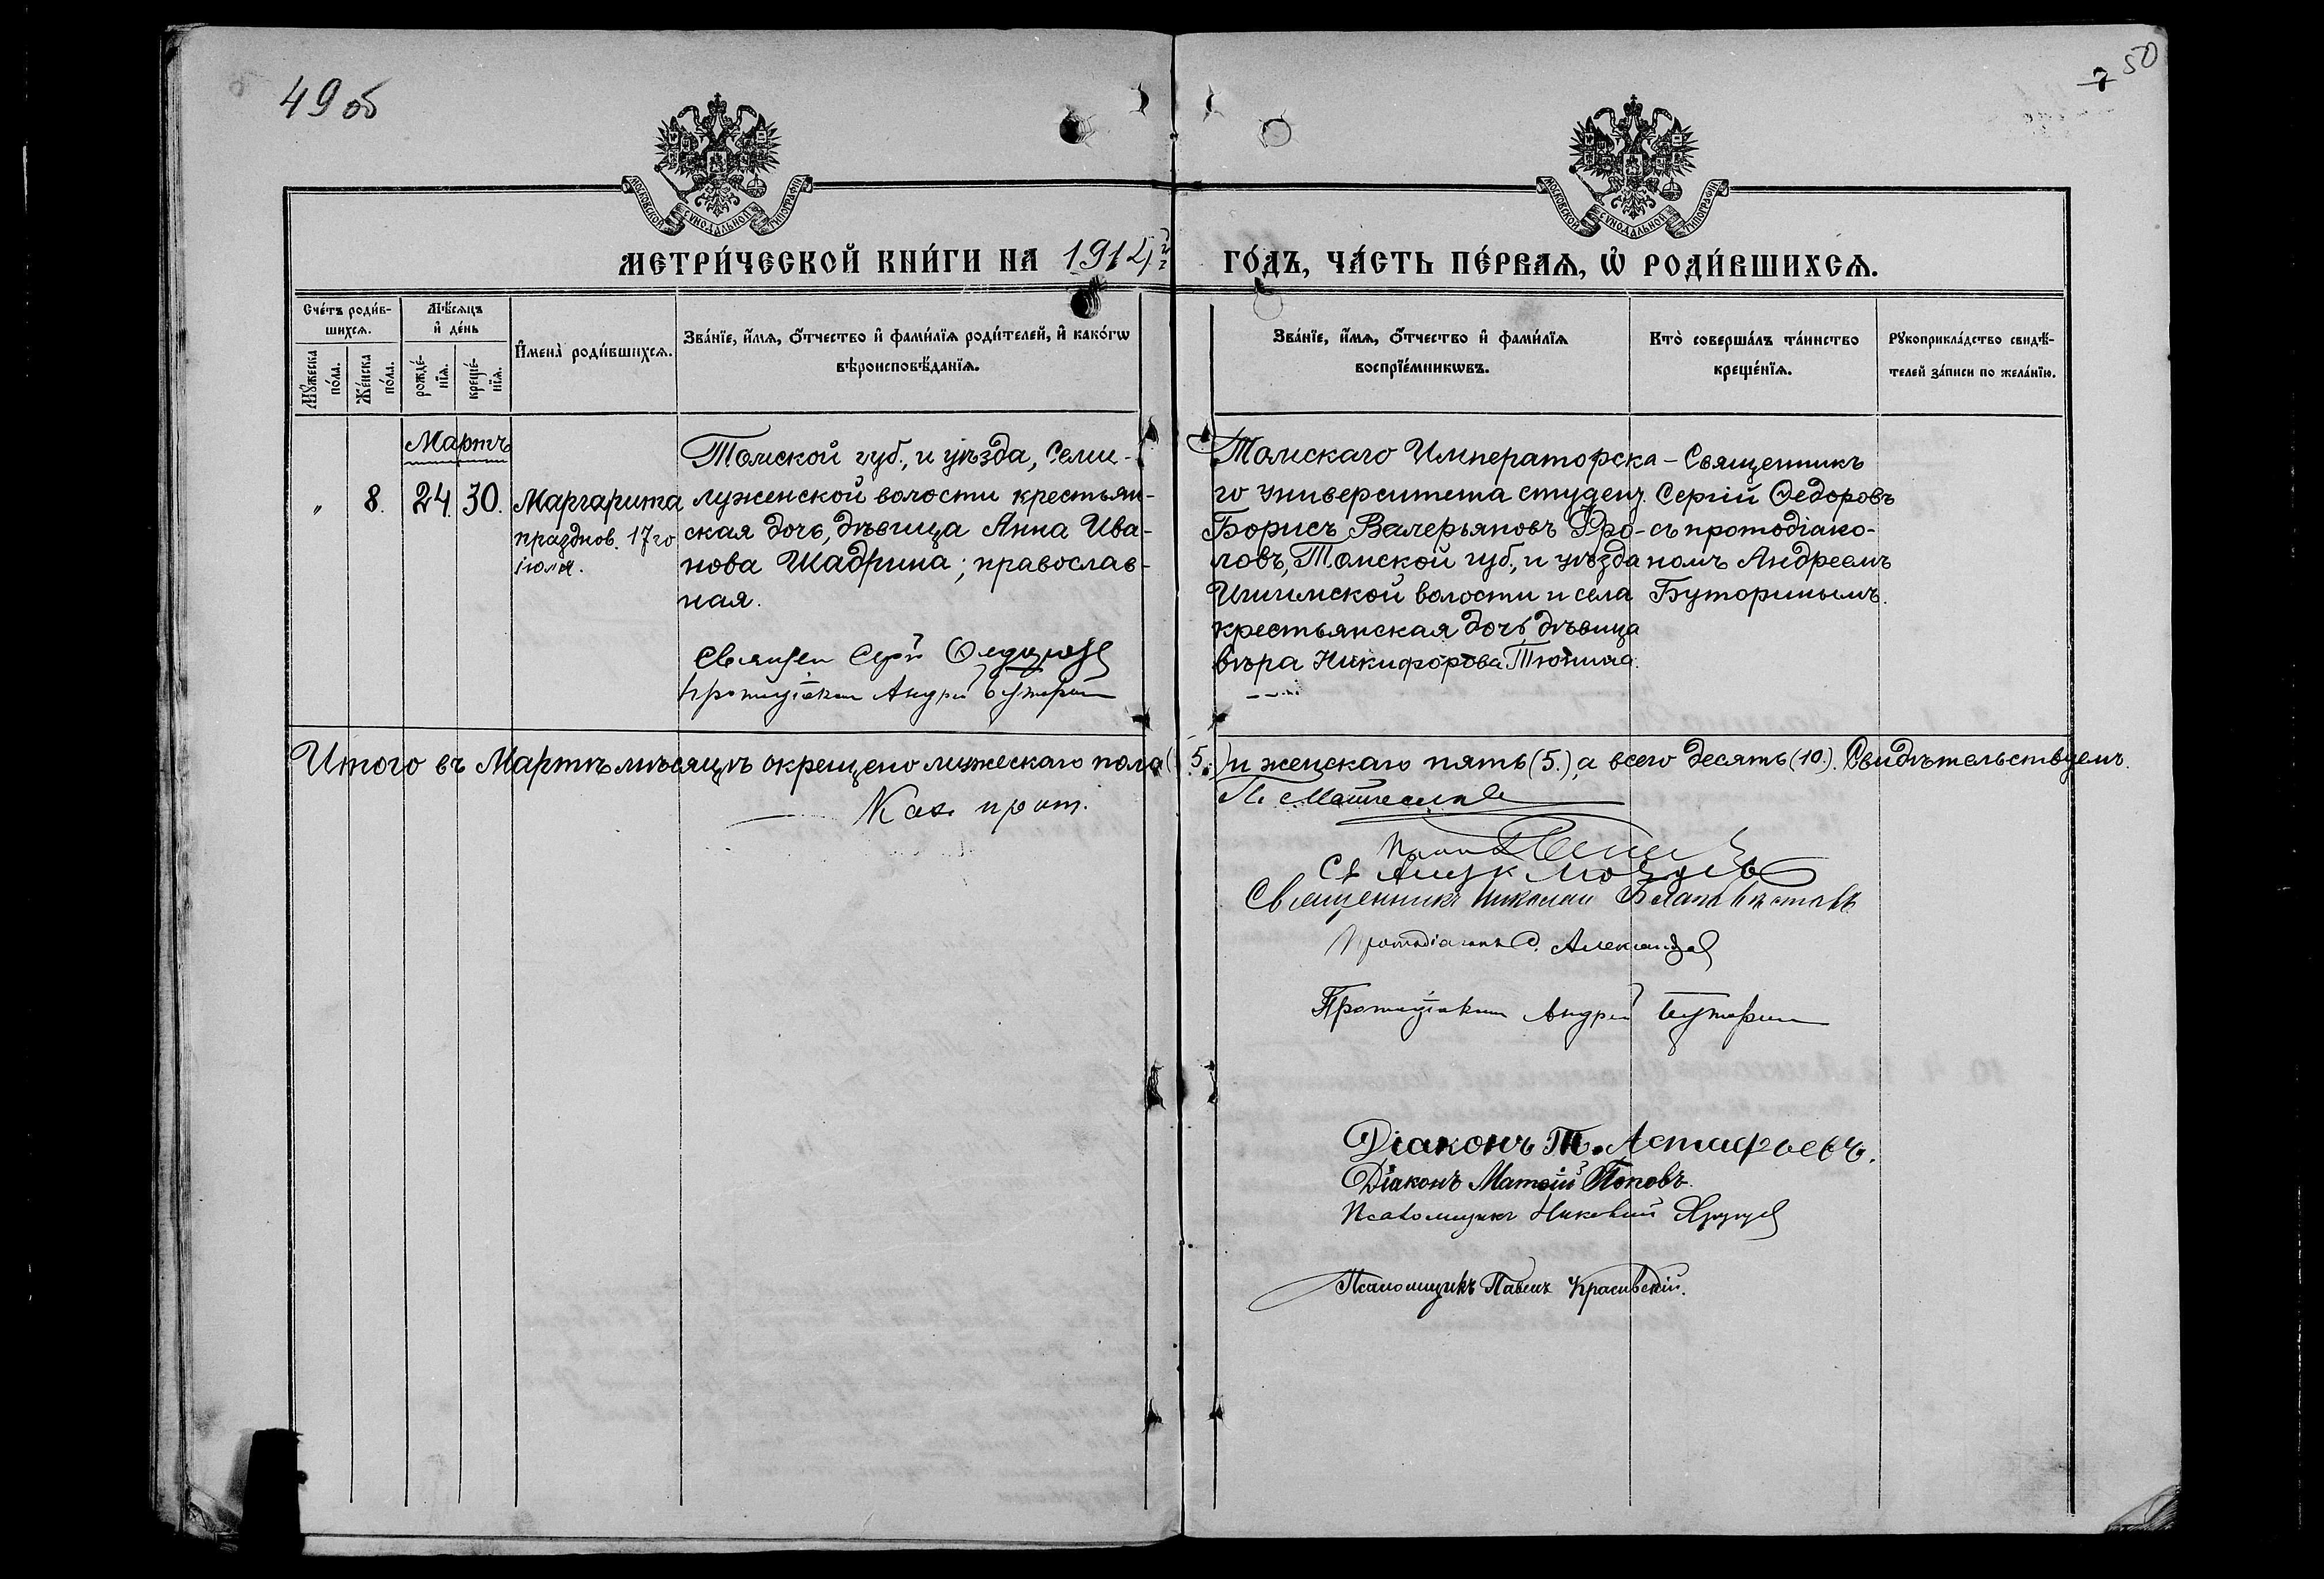 49 об
7 50
МОСКОВСКОЙ СУНОДАЛЬНОЙ ТИПОГРАФІИ
МОСКОВСКОЙ СУНОДАЛЬНОЙ ТИПОГРАФІИ
МЕТРИ́ЧЕСКОЙ КНИ́ГИ НА 1914й ГО́ДЪ, ЧА́СТЬ ПЕ́РВАѦ, Ѡ҆ РОДИ́ВШИХСѦ.
Сче́тъ роди́в-
шихсѧ.
Мꙋ́жеска
по́ла.
Же́нска
по́ла.
Мѣ́сѧцъ
и҆ де́нь
рожде́-
нїѧ.
креще́-
нїѧ.
И҆мена̀ роди́вшихсѧ.
Зва́нїе, и҆́мѧ, ѻ҆́тчество и҆ фами́лїѧ роди́телей, и҆ како́гѡ
вѣроисповѣ́данїѧ.
Зва́нїе, и҆́мѧ, ѻ҆́тчество и҆ фами́лїѧ
воспрїе́мникѡвъ.
Кто̀ соверша́лъ та́инство
креще́нїѧ.
Рꙋкоприкла́дство свидѣ́-
телей за́писи по жела́нїю.
Мартъ
" 8. 24. 30.
Маргарита
празднов. 17го
іюля.
Томской губ., и уѣзда, Семи-
луженской волости крестьян-
ская дочь, дѣвица Анна Ива-
нова Шадрина; православ-
ная.
Священ Сергій Ѳедоровъ
Протодіаконъ Андрей Буторинъ
Томскаго Императорска-
го университета студент
Борисъ Валерьяновъ Фро-
ловъ, Томской губ., и уѣзда
Ишимской волости и села
крестьянская дочь, дѣвица
Вѣра Никифорова Тюпина.
Священникъ
Сергій Ѳедоровъ
съ протодіако-
номъ Андреемъ
Буторинымъ.
Итого въ Мартѣ мѣсяцѣ окрещено мужескаго пола (5.) и женскаго пять (5.), а всего десять (10.). Свидѣтельствуемъ.
Каѳ. прот.
Священникъ Николай
Протодіаконъ Александров
Протодіаконъ Андрей Буторинъ
Діаконъ Т. Астафьевъ.
Діаконъ Матѳій Поповъ.
Псаломщикъ
Псаломщикъ Павелъ Красивскій.